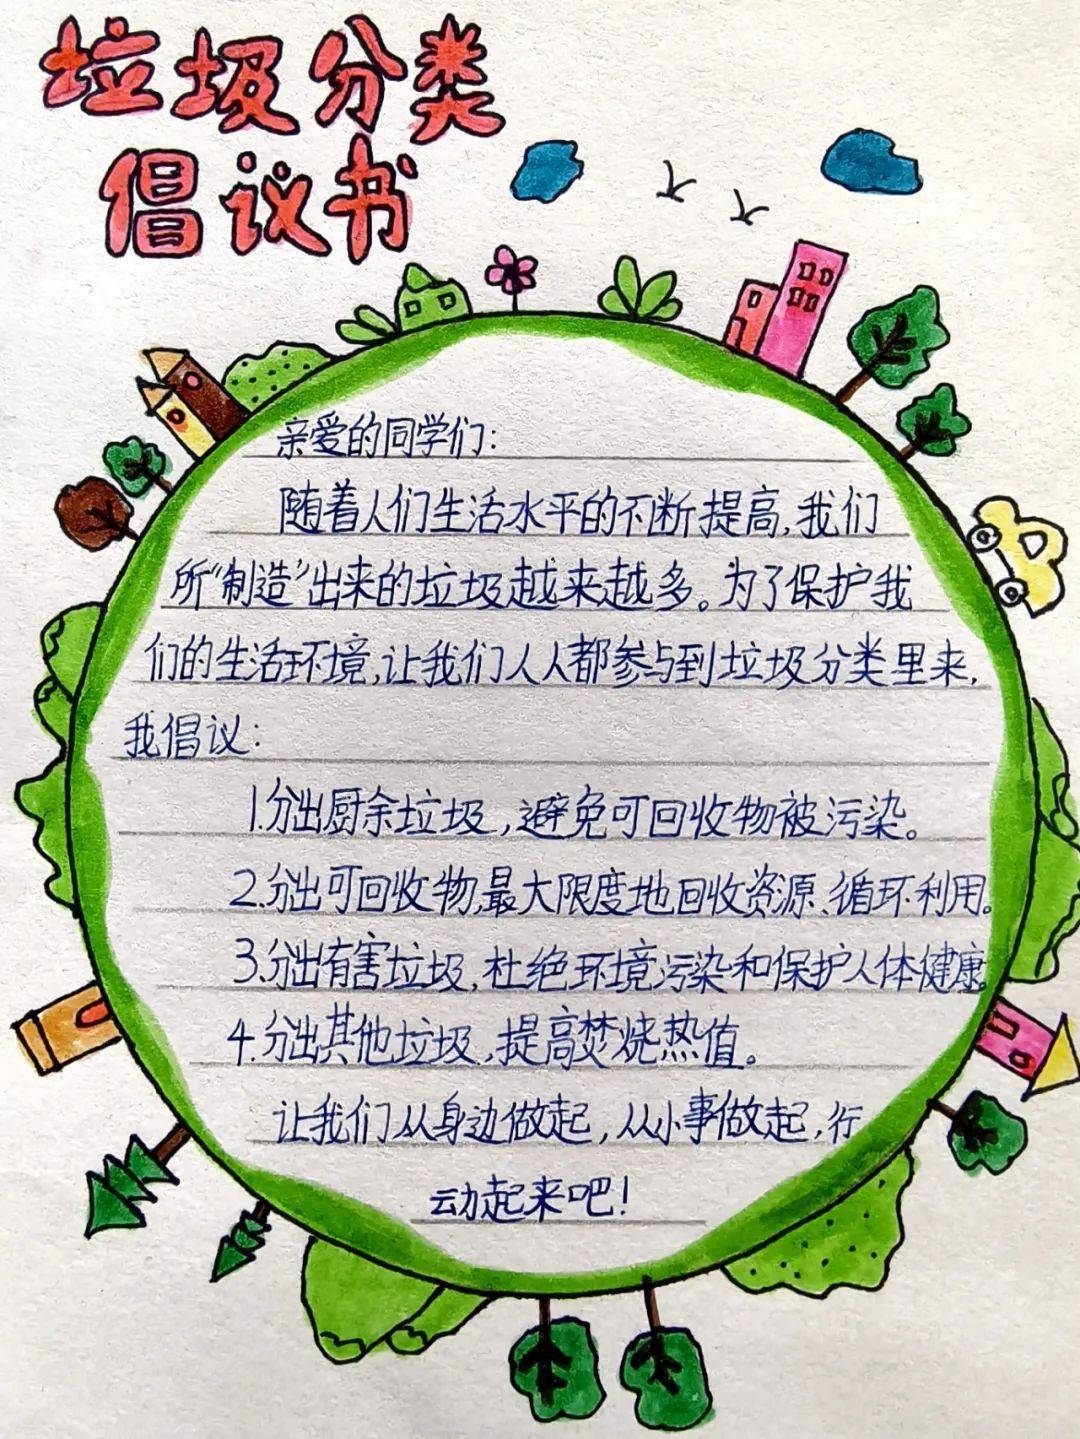 垃圾分类
倡议书
亲爱的同学们：
随着人们生活水平的不断提高，我们
所“制造”出来的垃圾越来越多。为了保护我
们的生活环境，让我们人人都参与到垃圾分类里来，
我倡议：
1.分出厨余垃圾，避免可回收物被污染。
2.分出可回收物，最大限度地回收资源、循环利用。
3.分出有害垃圾，杜绝环境污染和保护人体健康。
4.分出其他垃圾，提高焚烧热值。
让我们从身边做起，从小事做起，行
动起来吧！